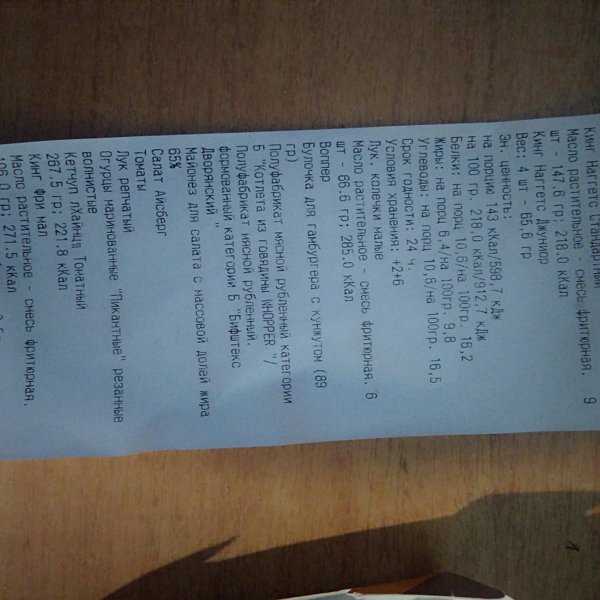 Кинг Наггетс Стандартный
Масло растительное - смесь фритюрная. 9
шт - 147.6 гр; 218.0 кКал
Кинг Наггетс Джуниор
Вес: 4 шт - 65,6 гр
Эн. ценность:
на порцию 143 кКал/598,7 кДж
на 100 гр. 218.0 кКал/912,7 кДж
Белки: на порц 10,6/на 100гр 16,2
Жиры: на порц 6,4/на 100гр. 9,8
Углеводы: на порц 10,8/на 100гр. 16,5
Срок годности: 24 ч.
Условия хранения: +2+6
Лук, колечки малые
Масло растительное - смесь фритюрная. 6
шт - 66.6 гр; 285.0 кКал
Воппер
Булочка для гамбургера с кунжутом (89
гр)
Полуфабрикат мясной рубленный категории
Б "Котлета из говядины WHOPPER "/
Полуфабрикат мясной рубленный.
формованный категории Б "Бифштекс
Дворянский "
Майонез для салата с массовой долей жира
65%
Салат Айсберг
Томаты
Лук репчатый
Огурцы маринованные "Пикантные" резанные
волнистые
Кетчуп лХайнця Томатный
267.5 гр; 221.8 кКал
Кинг Фри мал
Масло растительное - смесь фритюрная.
106.0 гр; 271.5 кКал